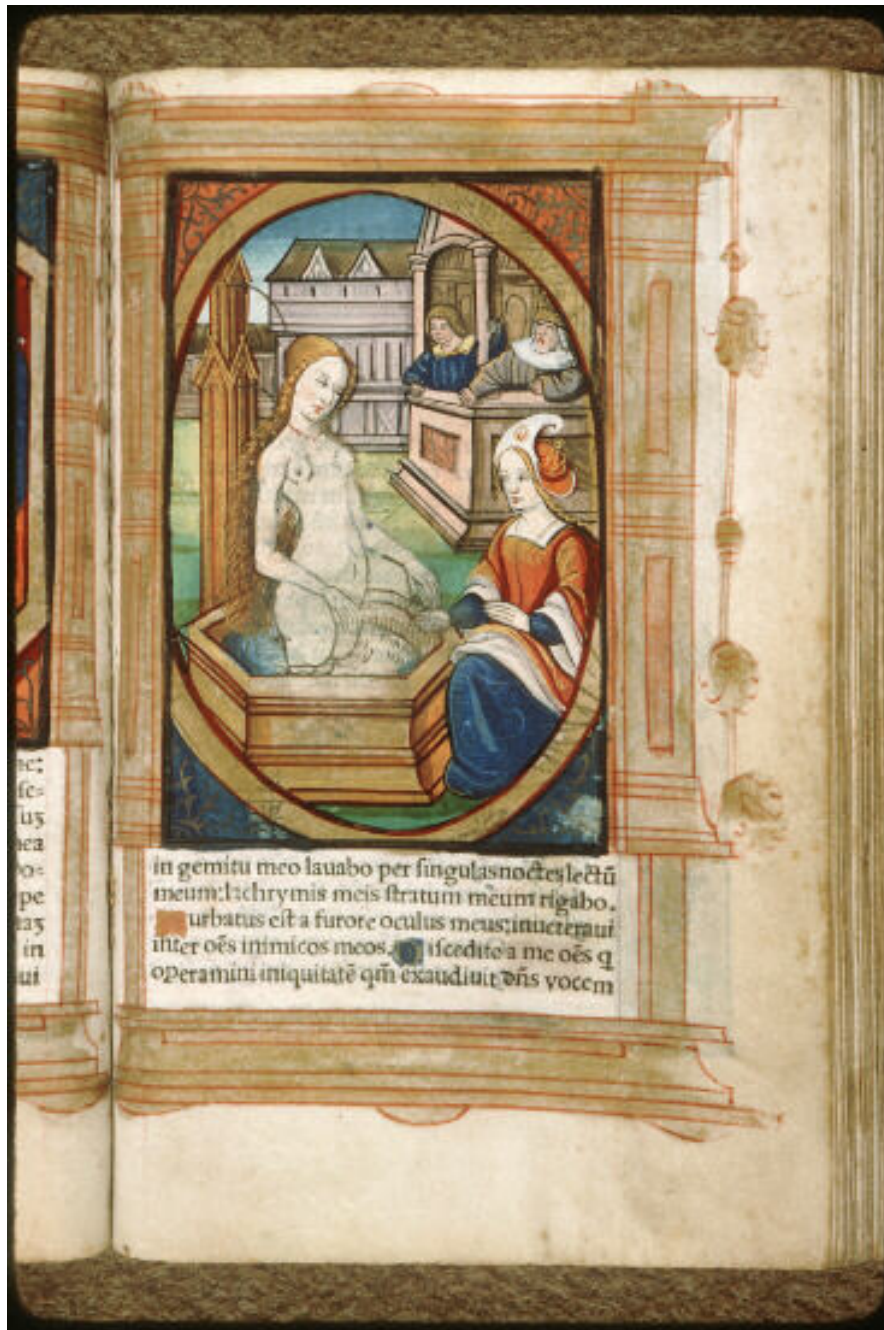 ne:
ſe=
ſuʒ
nea
po=
pe
taʒ
in
ui
in gemitu meo lauabo per ſingulas noctes lectū
meum: lachrymis meis ſtratum meum rigabo.
urbatus eſt a furore oculus meus: inueteraui
inter oēs inimicos meos. iſcedite a me oēs q
operamini iniquitatē qm̄ exaudiuit dn̄s vocem